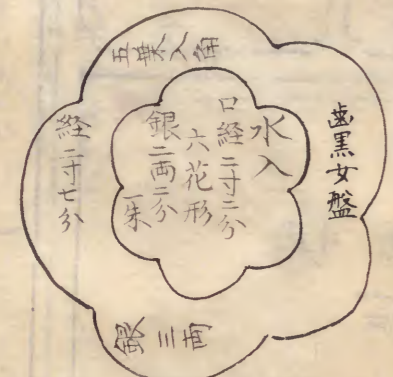 歯黒女盤
五葉入角
経二寸七分
銀三両
水入
口経二寸二分
六花形
銀二両二分
一朱